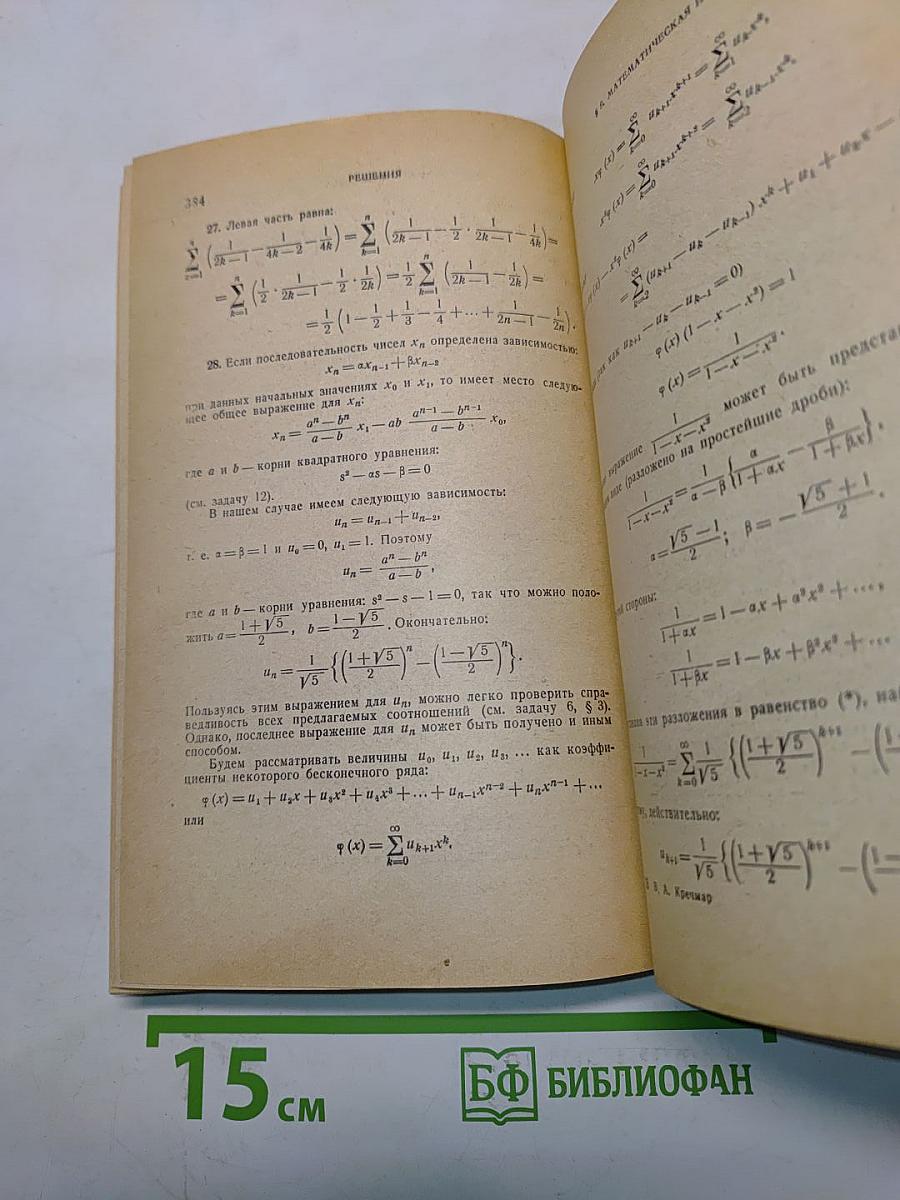 384
РЕШЕНИЯ
27. Левая часть равна:
∑ (1/(2k−1) − 1/(4k−2) − 1/(4k)) = ∑_{k=1}^{n} (1/(2k−1) − 1/2 · 1/(2k−1) − 1/(4k)) =
= ∑_{k=1}^{n} (1/2 · 1/(2k−1) − 1/2 · 1/(2k)) = 1/2 ∑_{k=1}^{n} (1/(2k−1) − 1/(2k)) =
= 1/2 (1 − 1/2 + 1/3 − 1/4 + ... + 1/(2n−1) − 1/(2n)).
28. Если последовательность чисел xₙ определена зависимостью:
xₙ = αxₙ₋₁ + βxₙ₋₂
при данных начальных значениях x₀ и x₁, то имеет место следую-
щее общее выражение для xₙ:
xₙ = (aⁿ − bⁿ)/(a − b) x₁ − ab (aⁿ⁻¹ − bⁿ⁻¹)/(a − b) x₀,
где a и b — корни квадратного уравнения:
s² − αs − β = 0
(см. задачу 12).
В нашем случае имеем следующую зависимость:
uₙ = uₙ₋₁ + uₙ₋₂,
т. е. α = β = 1 и u₀ = 0, u₁ = 1. Поэтому
uₙ = (aⁿ − bⁿ)/(a − b),
где a и b — корни уравнения: s² − s − 1 = 0, так что можно поло-
жить a = (1 + √5)/2, b = (1 − √5)/2. Окончательно:
uₙ = 1/√5 {((1 + √5)/2)ⁿ − ((1 − √5)/2)ⁿ}.
Пользуясь этим выражением для uₙ, можно легко проверить спра-
ведливость всех предлагаемых соотношений (см. задачу 6, § 3).
Однако, последнее выражение для uₙ может быть получено и иным
способом.
Будем рассматривать величины u₀, u₁, u₂, u₃, ... как коэффи-
циенты некоторого бесконечного ряда:
φ(x) = u₁ + u₂x + u₃x² + u₄x³ + ... + uₙ₋₁xⁿ⁻² + uₙxⁿ⁻¹ + ...
или
φ(x) = ∑_{k=0}^{∞} uₖ₊₁xᵏ.
МАТЕМАТИЧЕСКАЯ
xφ(x) = ∑_{k=0}^{∞} uₖ₊₁xᵏ⁺¹ = ∑_{k=1}^{∞} uₖxᵏ,
x²φ(x) = ∑_{k=0}^{∞} uₖ₊₁xᵏ⁺² = ∑_{k=2}^{∞} uₖ₋₁xᵏ,
(x) − x²φ(x) =
= ∑_{k=2}^{∞} (uₖ₊₁ − uₖ − uₖ₋₁) xᵏ + u₁ + u₂x −
так как uₖ₊₁ − uₖ − uₖ₋₁ = 0)
φ(x) (1 − x − x²) = 1
φ(x) = 1/(1 − x − x²).
выражение 1/(1 − x − x²) может быть предста
виде (разложено на простейшие дроби):
1/(1 − x − x²) = 1/(α − β) {α/(1 + αx) − β/(1 + βx)},
α = (√5 − 1)/2; β = − (√5 + 1)/2.
стороны:
1/(1 + αx) = 1 − αx + α²x² + ...,
1/(1 + βx) = 1 − βx + β²x² + ...
эти разложения в равенство (*), на
= ∑_{k=0}^{∞} 1/√5 {((1 + √5)/2)ᵏ⁺¹ − (
действительно:
uₖ₊₁ = 1/√5 {((1 + √5)/2)ᵏ⁺¹ − (
В. А. Кречмар
15 см
БФ БИБЛИОФАН